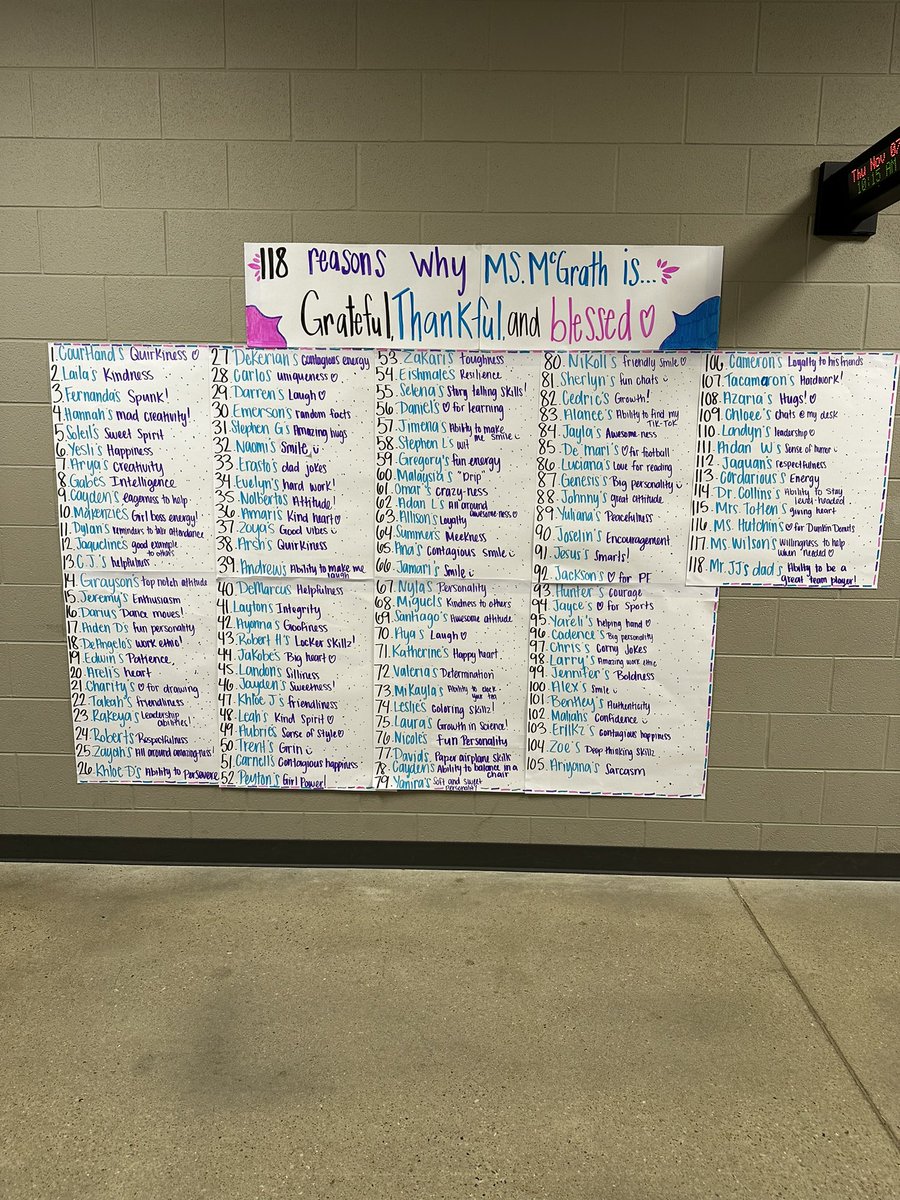 118 reasons why Ms. McGrath is...
Grateful, Thankful, and blessed ♡
1. Courtland's Quirkiness ♡
2. Laila's Kindness
3. Fernanda's Spunk!
4. Hannah's mad creativity!
5. Soleil's Sweet Spirit
6. Yesli's Happiness
7. Arya's Creativity
8. Gabe's Intelligence
9. Cayden's eagerness to help
10. Makenzie's Girl boss energy!
11. Dylan's reminders to take attendance
12. Jaqueline's good example
to others
13. C.J.'s helpfulness
14. Grayson's top notch attitude
15. Jeremy's Enthusiasm
16. Darius' Dance moves!
17. Aiden D's fun personality
18. DeAngelo's work ethic!
19. Edwin's Patience
20. Areli's heart
21. Charity's ♡ for drawing
22. Taleah's friendliness
23. Rakeya's Leadership
abilities!
24. Robert's Respectfulness
25. Zayah's All around amazing-ness!
26. Khloe D's Ability to Persevere
27. Dekerian's contagious energy
28. Carlos uniqueness ♡
29. Darren's Laugh ♡
30. Emerson's random facts
31. Stephen G's Amazing hugs
32. Naomi's Smile
33. Erasto's dad jokes
34. Evelyn's hard work!
35. Nolberto's Attitude!
36. Amari's Kind heart ♡
37. Zoya's Good vibes
38. Arsh's Quirkiness
39. Andrew's Ability to make me
laugh
40. DeMarcus Helpfulness
41. Layton's Integrity
42. Ayanna's Goofiness
43. Robert H's Locker Skillz!
44. Jakobe's Big heart ♡
45. Landon's Silliness
46. Jayden's Sweetness!
47. Khloe J's friendliness
48. Leah's Kind Spirit ♡
49. Aubrie's Sense of Style ♡
50. Trent's Grin
51. Carnell's Contagious happiness
52. Peyton's Girl Power!
53. Zakari's Toughness
54. Eishmale's Resilience
55. Selena's Story telling Skills!
56. Daniel's ♡ for learning
57. Jimena's Ability to make
me smile
58. Stephen L's wit
59. Gregory's fun energy
60. Malaysia's "Drip"
61. Omar's crazy-ness
62. Aidan L's All around
awesomeness ♡
63. Allison's Loyalty
64. Summer's Meekness
65. Ana's Contagious Smile
66. Jamari's Smile
67. Nyla's Personality
68. Miguel's Kindness to others
69. Santiago's Awesome attitude
70. Aya's Laugh ♡
71. Katherine's Happy heart
72. Valeria's Determination
73. Mikayla's Ability to
74. Leslie's Coloring Skillz!
75. Laura's Growth in Science!
76. Nicole's Fun Personality
77. David's Paper airplane skills
78. Cayden's Ability to balance in a
chair
79. Yamira's Soft and sweet
personality
80. Nikoll's friendly Smile ♡
81. Sherlyn's fun chats
82. Cedric's Growth!
83. Alanee's Ability to find my
Tik-Tok
84. Jayla's Awesome-ness
85. De'mari's ♡ for football
86. Luciana's Love for reading
87. Genesis's Big personality
88. Johnny's great attitude
89. Yuliana's Peacefulness
90. Joselin's Encouragement
91. Jesus's Smarts!
92. Jackson's ♡ for PF
93. Hunter's courage
94. Jayce's ♡ for Sports
95. Yareli's helping hand ♡
96. Cadence's Big personality
97. Chris's Corny Jokes
98. Larry's Amazing work ethic
99. Jennifer's Boldness
100. Alex's smile
101. Bentley's Authenticity
102. Maliah's Confidence
103. Erilkz's contagious happiness
104. Zoe's Deep thinking Skillz
105. Ariyana's Sarcasm
106. Cameron's Loyalty to his friends
107. Tacamaron's Hardwork!
108. Azaria's Hugs! ♡
109. Chloee's chats @ my desk
110. Landyn's leadership ♡
111. Aidan W's Sense of humor
112. Jaquan's respectfulness
113. Cordarious's Energy
114. Dr. Collin's Ability to Stay
level-headed
115. Mrs. Totten's giving heart
116. Ms. Hutchins ♡ for Dunkin Donuts
117. Ms. Wilson's Willingness to help
when needed ♡
118. Mr. JJ's dad's Ability to be a
great team player!
Thu Nov 07
10:15 AM